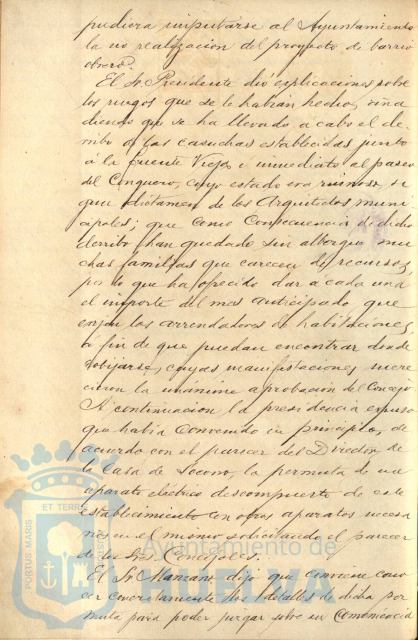 pudiera imputarse al Ayuntamiento
la no realización del proyecto de barrio
obrero.
El Sr. Presidente dió explicaciones sobre
los ruegos que se le habían hecho, aña
diendo que se ha llevado a cabo el de
rribo de las casuchas establecidas junto
á la fuente Vieja é inmediato al paseo
del Conquero, cuyo estado era ruinoso, se
gun dictamen de los Arquitectos muni
cipales; que como consecuencia de dicho
derribo han quedado sin albergue mu
chas familias que carecen de recursos,
por lo que ha ofrecido dar á cada una
el importe del mes anticipado que
exijen los arrendadores de habitaciones,
á fin de que puedan encontrar donde
cobijarse, cuyas manifestaciones mere
cieron la unánime aprobación del Concejo.
A continuación la presidencia expuso
que había convenido en principio, de
acuerdo con el parecer del Director de
la Casa de Socorro, la permuta de un
aparato eléctrico descompuesto de este
establecimiento con otros aparatos necesa
rios en el mismo solicitando el parecer
de los Sres. Concejales.
El Sr. Manzano dijo que conviene cono
cer concretamente los detalles de dicha per
muta para poder juzgar sobre su conveniencia
PORTUS MARIS
ET TERRE
Ayuntamiento de
HUELVA